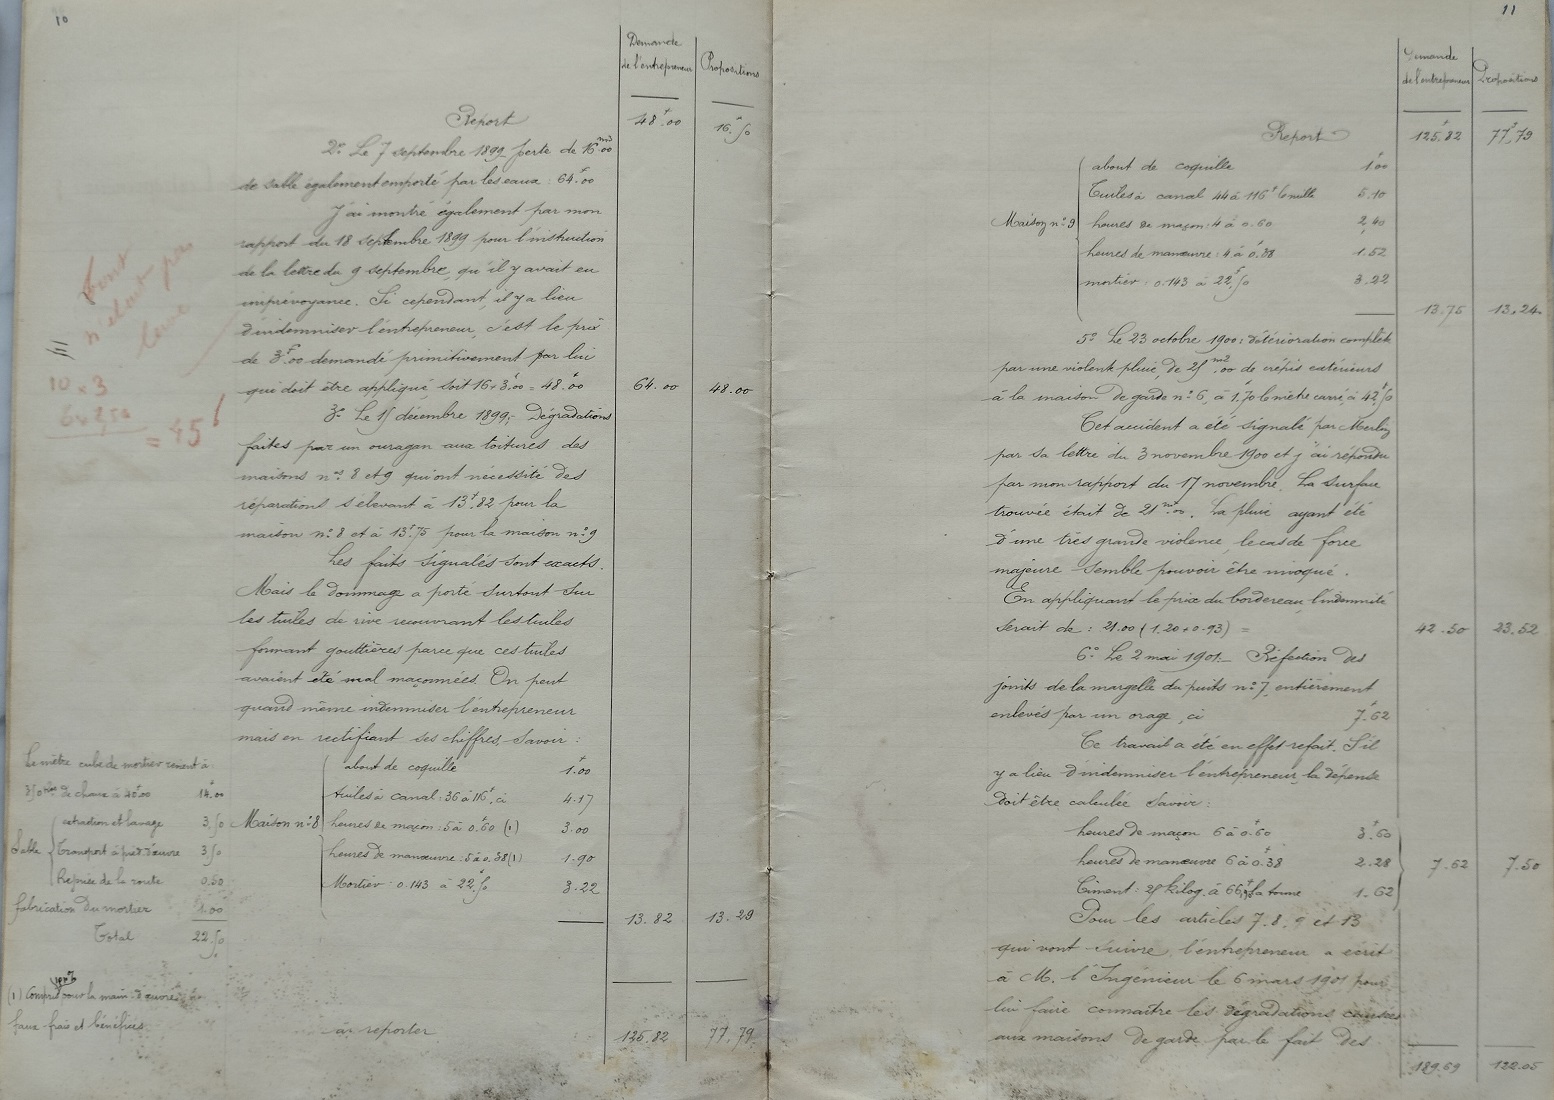 10
Demande
de l'entrepreneur
Propositions
Report 48f.00 16f.50
2º Le 7 septembre 1899 perte de 16m3.00
de sable également emporté par les eaux : 64f.00
J'ai montré également par mon
rapport du 18 septembre 1899 pour l'instruction
de la lettre du 9 septembre, qu'il y avait eu
imprévoyance. Si cependant, il y a lieu
d'indemniser l'entrepreneur, c'est le prix
de 3f.00 demandé primitivement par lui
qui doit être appliqué, soit 16 x 3f.00 = 48f.00 64.00 48.00
3º Le 15 décembre 1899,- Dégradations
faites par un ouragan aux toitures des
maisons nos 8 et 9 qui ont nécessité des
réparations s'élevant à 13f.82 pour la
maison nº 8 et à 13f.75 pour la maison nº 9
Les faits signalés sont exacts.
Mais le dommage a porté surtout sur
les tuiles de rive recouvrant les tuiles
formant gouttières parce que ces tuiles
avaient été mal maçonnées. On peut
quand même indemniser l'entrepreneur
mais en rectifiant ses chiffres, savoir :
Maison nº 8
about de coquille 1f.00
tuiles à canal : 36 à 116f, ci 4.17
heures de maçon : 5 à 0f.60 (1) 3.00
heures de manœuvre : 5 à 0.38 (1) 1.90
Mortier : 0.143 à 22f.50 3.22
13.82 13.29
à reporter 125.82 77.79
n'était pas
10 x 3
6 x 2,50
= 45f
Le mètre cube de mortier revient à :
350 kilos de chaux à 40f.00 14.00
Sable
extraction et lavage 3.50
Transport à pied d'œuvre 3.50
Reprise de la route 0.50
fabrication du mortier 1.00
Total 22.50
(1) Compris pour la main d'œuvre
faux frais et bénéfices
11
Demande
de l'entrepreneur
Propositions
Report 125f.82 77f.79
Maison nº 9
about de coquille 1f.00
Tuiles à canal 44 à 116f le mille 5.10
heures de maçon : 4 à 0.60 2.40
heures de manœuvre : 4 à 0f.38 1.52
mortier : 0.143 à 22f.50 3.22
13.75 13.24
5º Le 23 octobre 1900 : détérioration complète
par une violente pluie, de 25m2.00 de crépis extérieurs
à la maison de garde nº 6, à 1f.70 le mètre carré, à 42f.50
Cet accident a été signalé par Merlin
par sa lettre du 3 novembre 1900 et j'ai répondu
par mon rapport du 17 novembre. La surface
trouvée était de 21m.00. La pluie ayant été
d'une très grande violence, le cas de force
majeure semble pouvoir être invoqué.
En appliquant le prix du bordereau, l'indemnité
serait de : 21.00 (1.20 + 0.93) = 42.50 23.52
6º Le 2 mai 1901.- Réfection des
joints de la margelle du puits nº 7, entièrement
enlevés par un orage, ci 7f.62
Ce travail a été en effet refait. S'il
y a lieu d'indemniser l'entrepreneur, la dépense
doit être calculée savoir :
heures de maçon 6 à 0f.60 3f.60
heures de manœuvre 6 à 0f.38 2.28 7.62 7.50
Ciment : 25 kilog. à la tonne 1.62
Pour les articles 7. 8. 9 et 13
qui vont suivre, l'entrepreneur a écrit
à M. l'Ingénieur le 6 mars 1901 pour
lui faire connaître les dégradations causées
aux maisons de garde par le fait des
189.69 122.05